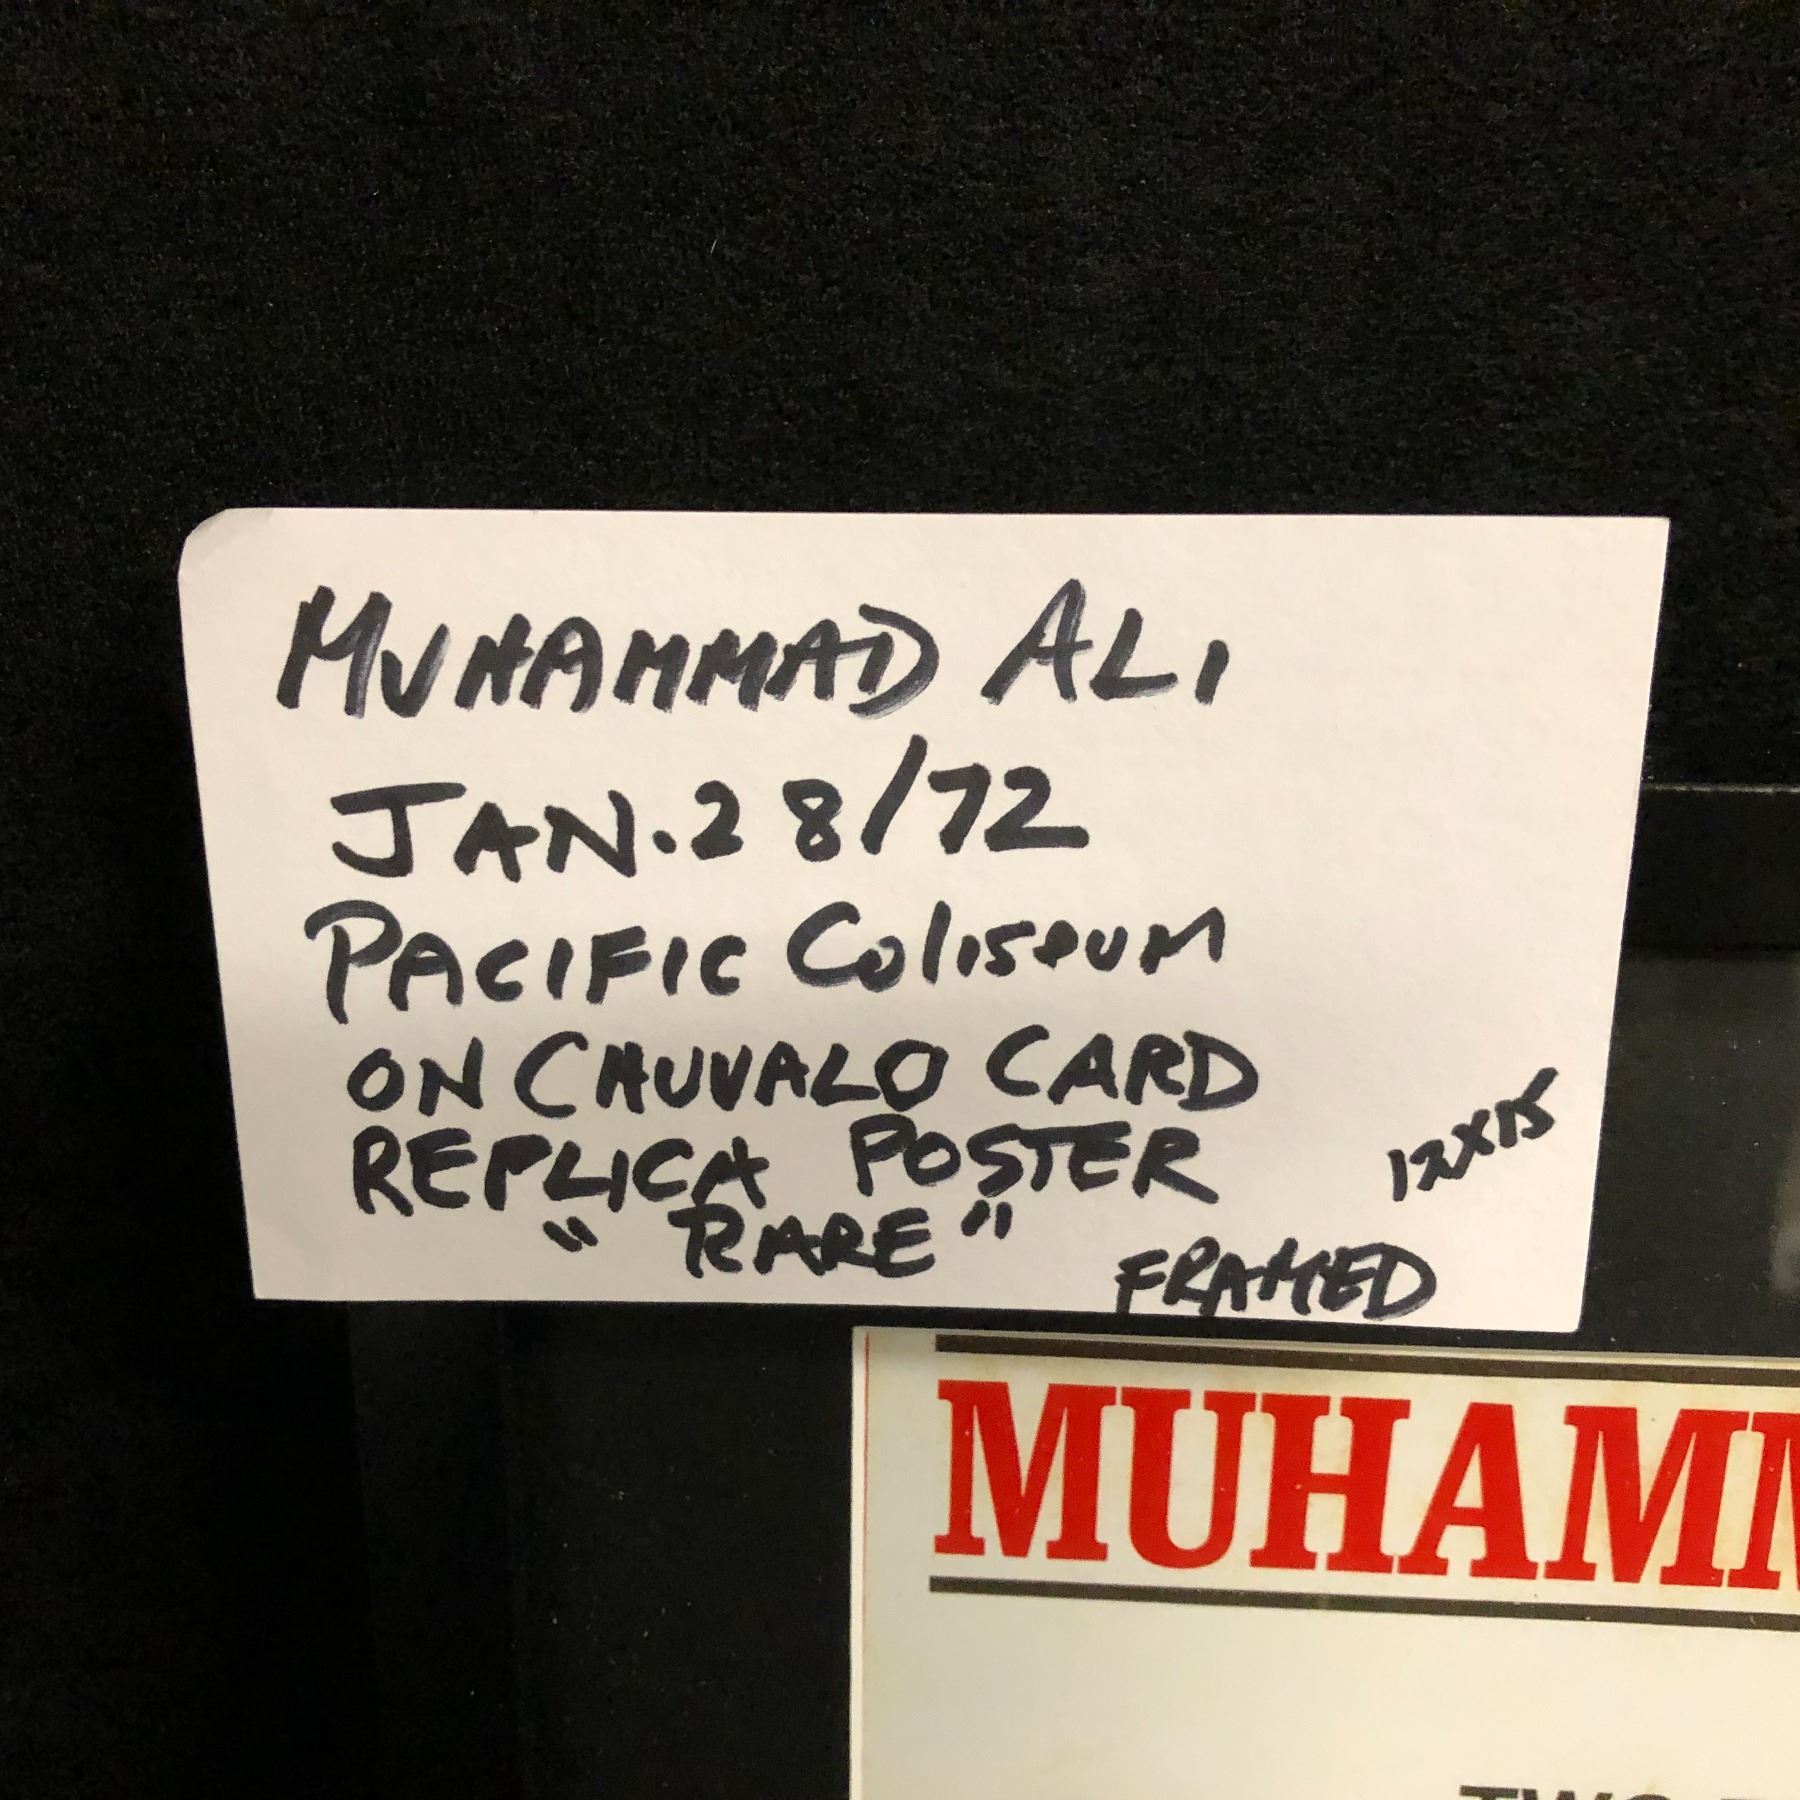 MUHAMMAD ALI
JAN. 28/72
PACIFIC COLISEUM
ON CHUVALO CARD
REPLICA POSTER
12X15
"RARE"
FRAMED
MUHAMM
TWO